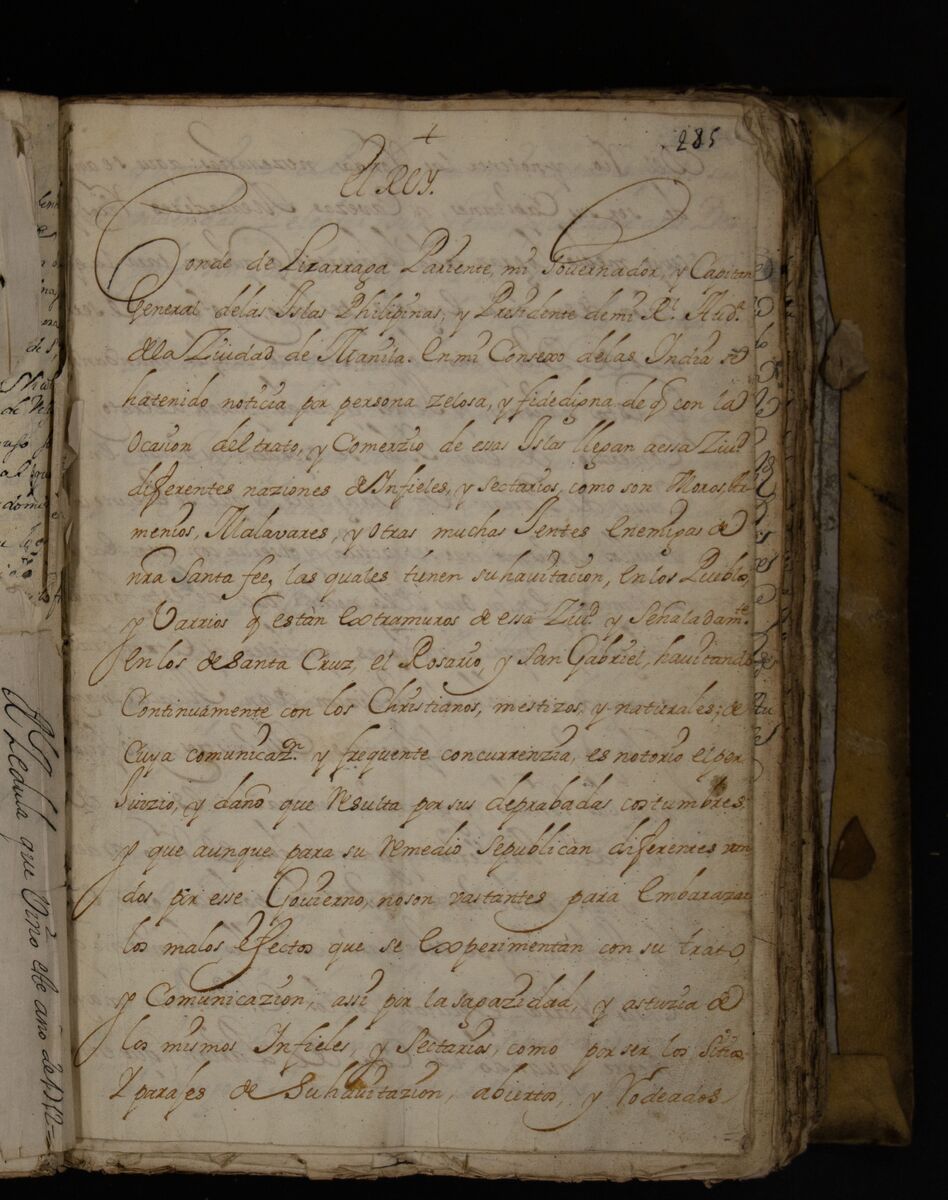 +
285
El Rey.
Conde de Lizarraga Pariente, mi Governador, y Capitan
General delas Islas Philipinas, y Presidente demi Rl. Audª.
dela Ziudad de Manila. En mi Consexo delas Indias se
hatenido noticia por persona zelosa, y fidedigna de q̃ con la
Ocasion del trato, y Comerzio de essas Islas llegan aessa Ziud.
diferentes naziones de Infieles, y Sectarios, como son Moros, Ar
menios, Malavares, y otras muchas Jentes Enemigas de
nra Santa fee, las quales tienen suhavitacion, en los Pueblos,
y Varrios q̃ estàn extramuros de essa Ziud. y Señaladamte.
en los de Santa Cruz, el Rosario, y San Gabriel, havitando
Continuamente con los Christianos, mestizos y naturales; de
cuya comunicazon. y frequente concurrenzia, es notorio el per
Juizio, y daño que resulta por sus deprabadas costumbres
y que aunque para su remedio sepublican diferentes van
dos por esse Govierno, noson vastantes para embarazar
los malos efectos que se experimentan con su trato,
y Comunicazion, assi por la sagazidad, y astuzia de
los mismos Infieles, y Sectarios, como por ser los sitios
Y parajes de Suhavitazion, abiertos, y Rodeados
Rl Zedula que Vino este año de 1712